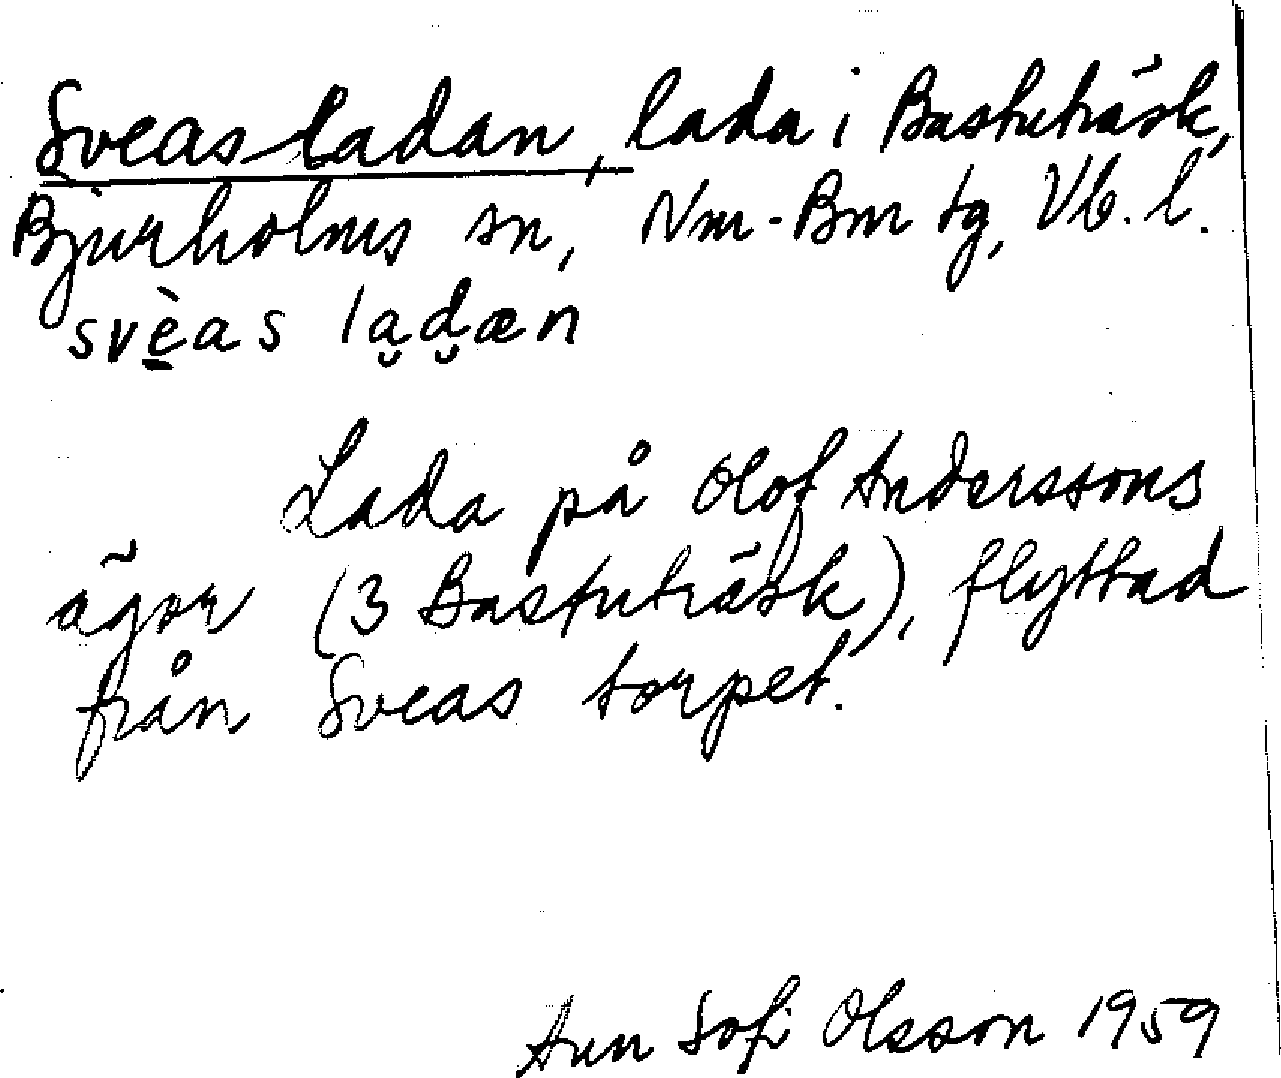 Sveasladan, lada i Bastuträsk,
Bjurholms sn, Nm-Bm tg, Vb. l.
svè̱as la̮d̮æn
Lada på Olof Anderssons
ägor (3 Bastuträsk), flyttad
från Sveas torpet.
Ann Sofi Olsson 1959